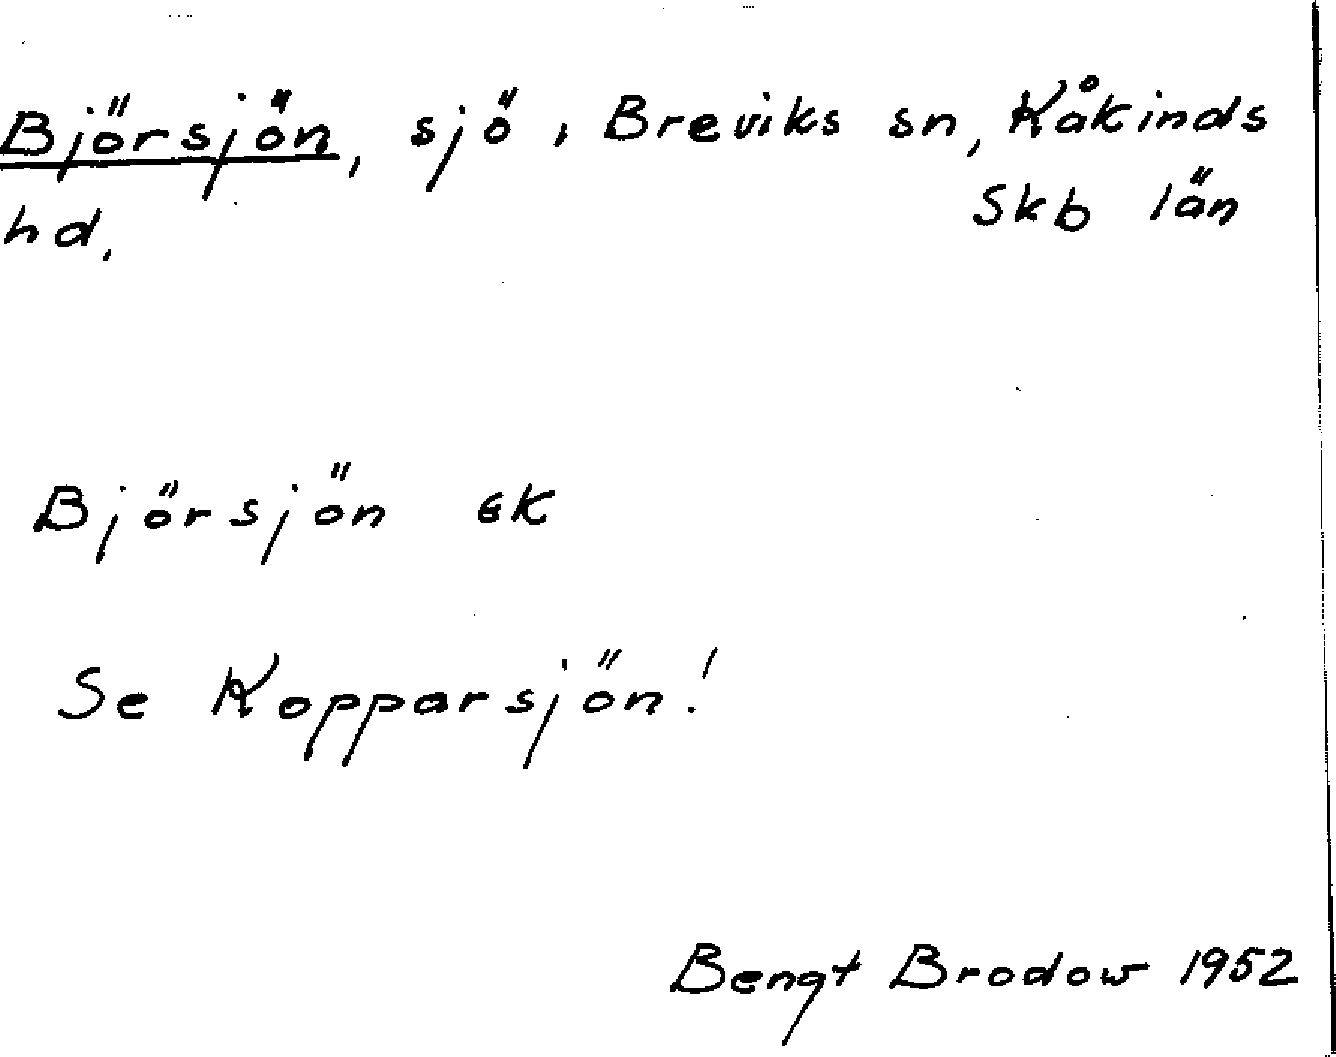 Björsjön, sjö, Breviks sn, Kåkinds
hd. Skb län
Björsjön EK
Se Kopparsjön!
Bengt Brodow 1952